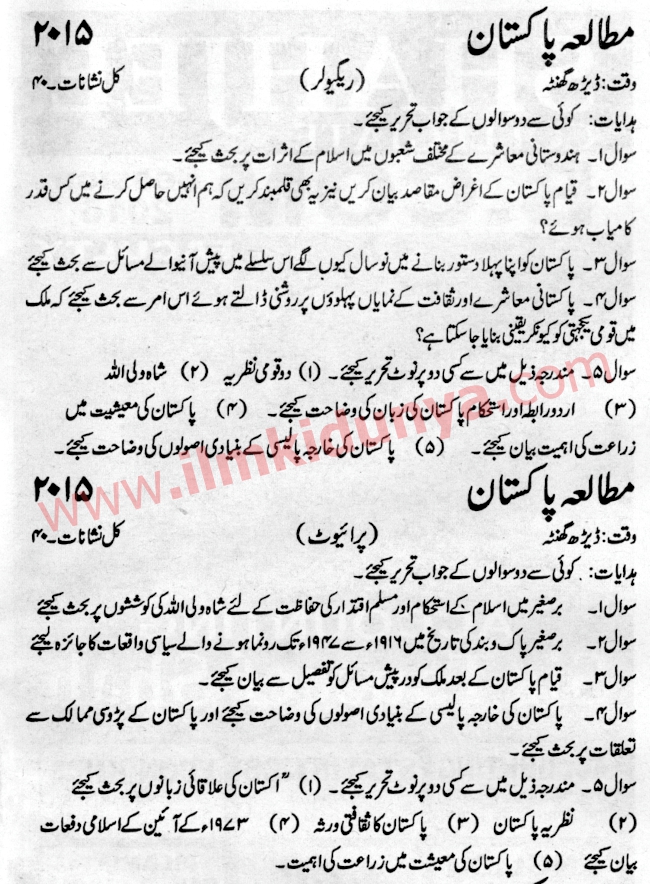 مطالعہ پاکستان ۲۰۱۵
وقت: ڈیڑھ گھنٹہ (ریگولر) کل نشانات۔ ۴۰
ہدایات: کوئی سے دو سوالوں کے جواب تحریر کیجئے۔
سوال ۱۔ ہندوستانی معاشرے کے مختلف شعبوں میں اسلام کے اثرات پر بحث کیجئے۔
سوال ۲۔ قیام پاکستان کے اغراض مقاصد بیان کریں نیز یہ بھی قلمبند کریں کہ ہم انہیں حاصل کرنے میں کس قدر
کامیاب ہوئے؟
سوال ۳۔ پاکستان کو اپنا پہلا دستور بنانے میں نو سال کیوں لگے اس سلسلے میں پیش آنیوالے مسائل سے بحث کیجئے
سوال ۴۔ پاکستانی معاشرے اور ثقافت کے نمایاں پہلوؤں پر روشنی ڈالتے ہوئے اس امر سے بحث کیجئے کہ ملک
میں قومی یکجہتی کو کیونکر یقینی بنایا جا سکتا ہے؟
سوال ۵۔ مندرجہ ذیل میں سے کسی دو پر نوٹ تحریر کیجئے۔ (۱) دو قومی نظریہ (۲) شاہ ولی اللہ
(۳) اردو رابطہ اور استحکام پاکستان کی زبان کی وضاحت کیجئے۔ (۴) پاکستان کی معیشیت میں
زراعت کی اہمیت بیان کیجئے۔ (۵) پاکستان کی خارجہ پالیسی کے بنیادی اصولوں کی وضاحت کیجئے۔
www.ilmkidunya.com
مطالعہ پاکستان ۲۰۱۵
وقت: ڈیڑھ گھنٹہ (پرائیوٹ) کل نشانات۔ ۴۰
ہدایات: کوئی سے دو سوالوں کے جواب تحریر کیجئے۔
سوال ۱۔ برصغیر میں اسلام کے استحکام اور مسلم اقتدار کی حفاظت کے لئے شاہ ولی اللہ کی کوششوں پر بحث کیجئے
سوال ۲۔ برصغیر پاک و ہند کی تاریخ میں ۱۹۱۶ء سے ۱۹۴۷ء تک رونما ہونے والے سیاسی واقعات کا جائزہ لیجئے
سوال ۳۔ قیام پاکستان کے بعد ملک کو درپیش مسائل کو تفصیل سے بیان کیجئے۔
سوال ۴۔ پاکستان کی خارجہ پالیسی کے بنیادی اصولوں کی وضاحت کیجئے اور پاکستان کے پڑوسی ممالک سے
تعلقات پر بحث کیجئے۔
سوال ۵۔ مندرجہ ذیل میں سے کسی دو پر نوٹ تحریر کیجئے۔ (۱) اکستان کی علاقائی زبانوں پر بحث کیجئے
(۲) نظریہ پاکستان (۳) پاکستان کا ثقافتی ورثہ (۴) ۱۹۷۳ء کے آئین کے اسلامی دفعات
بیان کیجئے (۵) پاکستان کی معیشت میں زراعت کی اہمیت۔